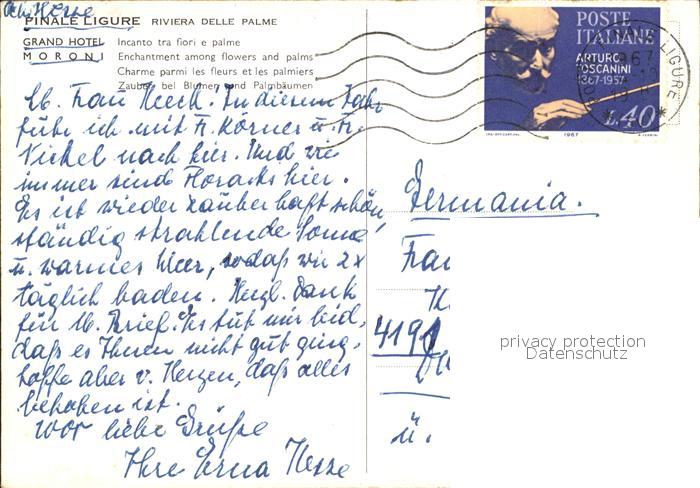 Hesse
FINALE LIGURE RIVIERA DELLE PALME
GRAND HOTEL Incanto tra fiori e palme
MORONI Enchantment among flowers and palms
Charme parmi les fleurs et les palmiers
Zauber bei Blumen und Palmbäumen
POSTE
ITALIANE
ARTURO
TOSCANINI
1867-1957
L.40
1967
Lb. Frau Heeck. In diesem Jahr
fuhr ich mit Fr. Körner u. Fr.
Nickel nach hier. Und wie
immer sind Horacks hier.
Es ist wieder zauberhaft schön,
ständig strahlende Sonne
u. warmes Meer, sodaß wir 2x
täglich baden. Herzl. Dank
für lb. Brief. Es tut mir leid,
daß es Ihnen nicht gut ging,
hoffe aber v. Herzen, daß alles
behoben ist.
liebe Grüße
Ihre Erna Hesse
Germania.
Frau
4191
ü.
privacy protection
Datenschutz